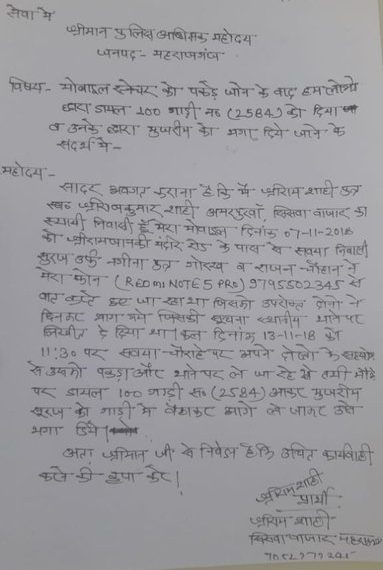 सेवा में
श्रीमान पुलिस अधिक्षक महोदय
जनपद - महराजगंज
विषय - मोबाइल स्नेचर को पकड़े जाने के बाद हम लोगो
द्वारा डायल 100 गाड़ी नं0 (2584) को दिया
व उनके द्वारा मुजरिम को भगा दिये जाने के
संदर्भ में -
महोदय -
सादर अवगत कराना है कि मैं श्रीराम शाही पुत्र
स्व0 कुमार शाही अमरपुरवा, सिसवा बाजार का
स्थायी निवासी हूँ मेरा मोबाइल दिनांक 07-11-2018
को श्रीरामजानकी मंदिर रोड के पास से सबया निवासी
सूरज उर्फ नगीना पुत्र गोरख व राजन चौहान ने
मेरा फोन (REDMI NOTE 5 PRO) 9795502345 से
बात करते हुए जा रहा था जिसको उपरोक्त दोनो ने
छिनकर भाग गये जिसकी सूचना स्थानीय थाने पर
लिखित दे दिया था। कल दिनांक 13-11-18 को
11:30 पर सबया चौराहे पर अपने लोगो के सहयोग
से उसको पकड़ा और थाने पर ले जा रहे थे तभी मौके
पर डायल 100 गाड़ी सं0 (2584) आकर मुजरिम
सूरज को गाड़ी में बैठाकर आगे ले जाकर उसे
भगा दिये।
अतः श्रीमान जी से निवेदन है कि उचित कार्यवाही
करने की कृपा करें।
श्रीराम शाही
प्रार्थी
श्रीराम शाही
सिसवा बाजार महराजगंज